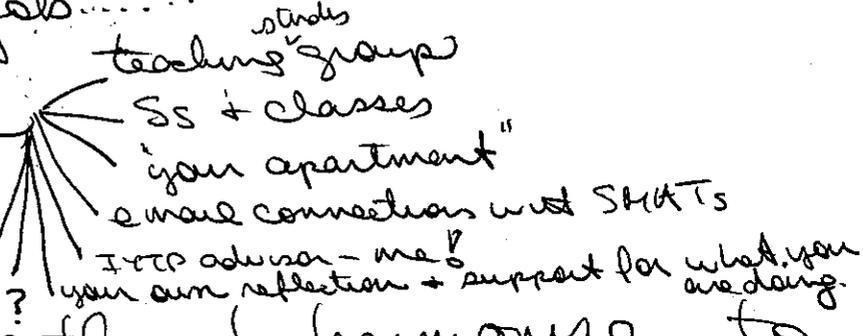 studies
teaching group
Ss + classes
"your apartment"
email connections with SMATs
ITTP advisor - me!
your own reflection + support for what you
are doing.
?